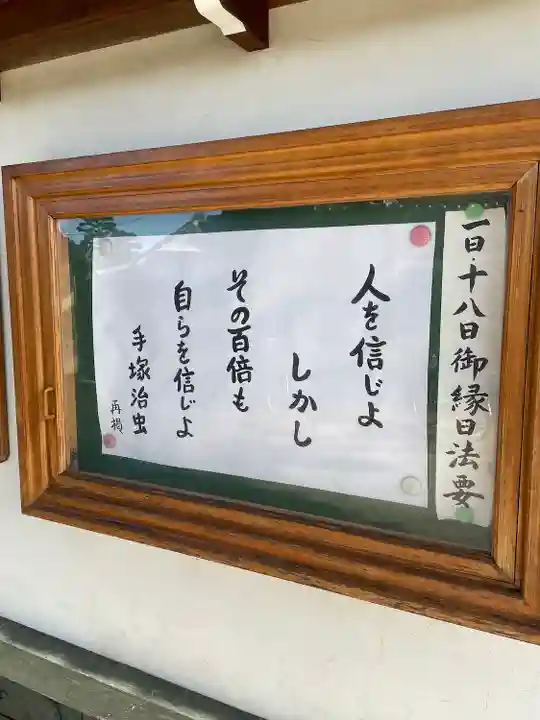 一日・十八日御縁日法要
人を信じよ
しかし
その百倍も
自らを信じよ
手塚治虫
再掲